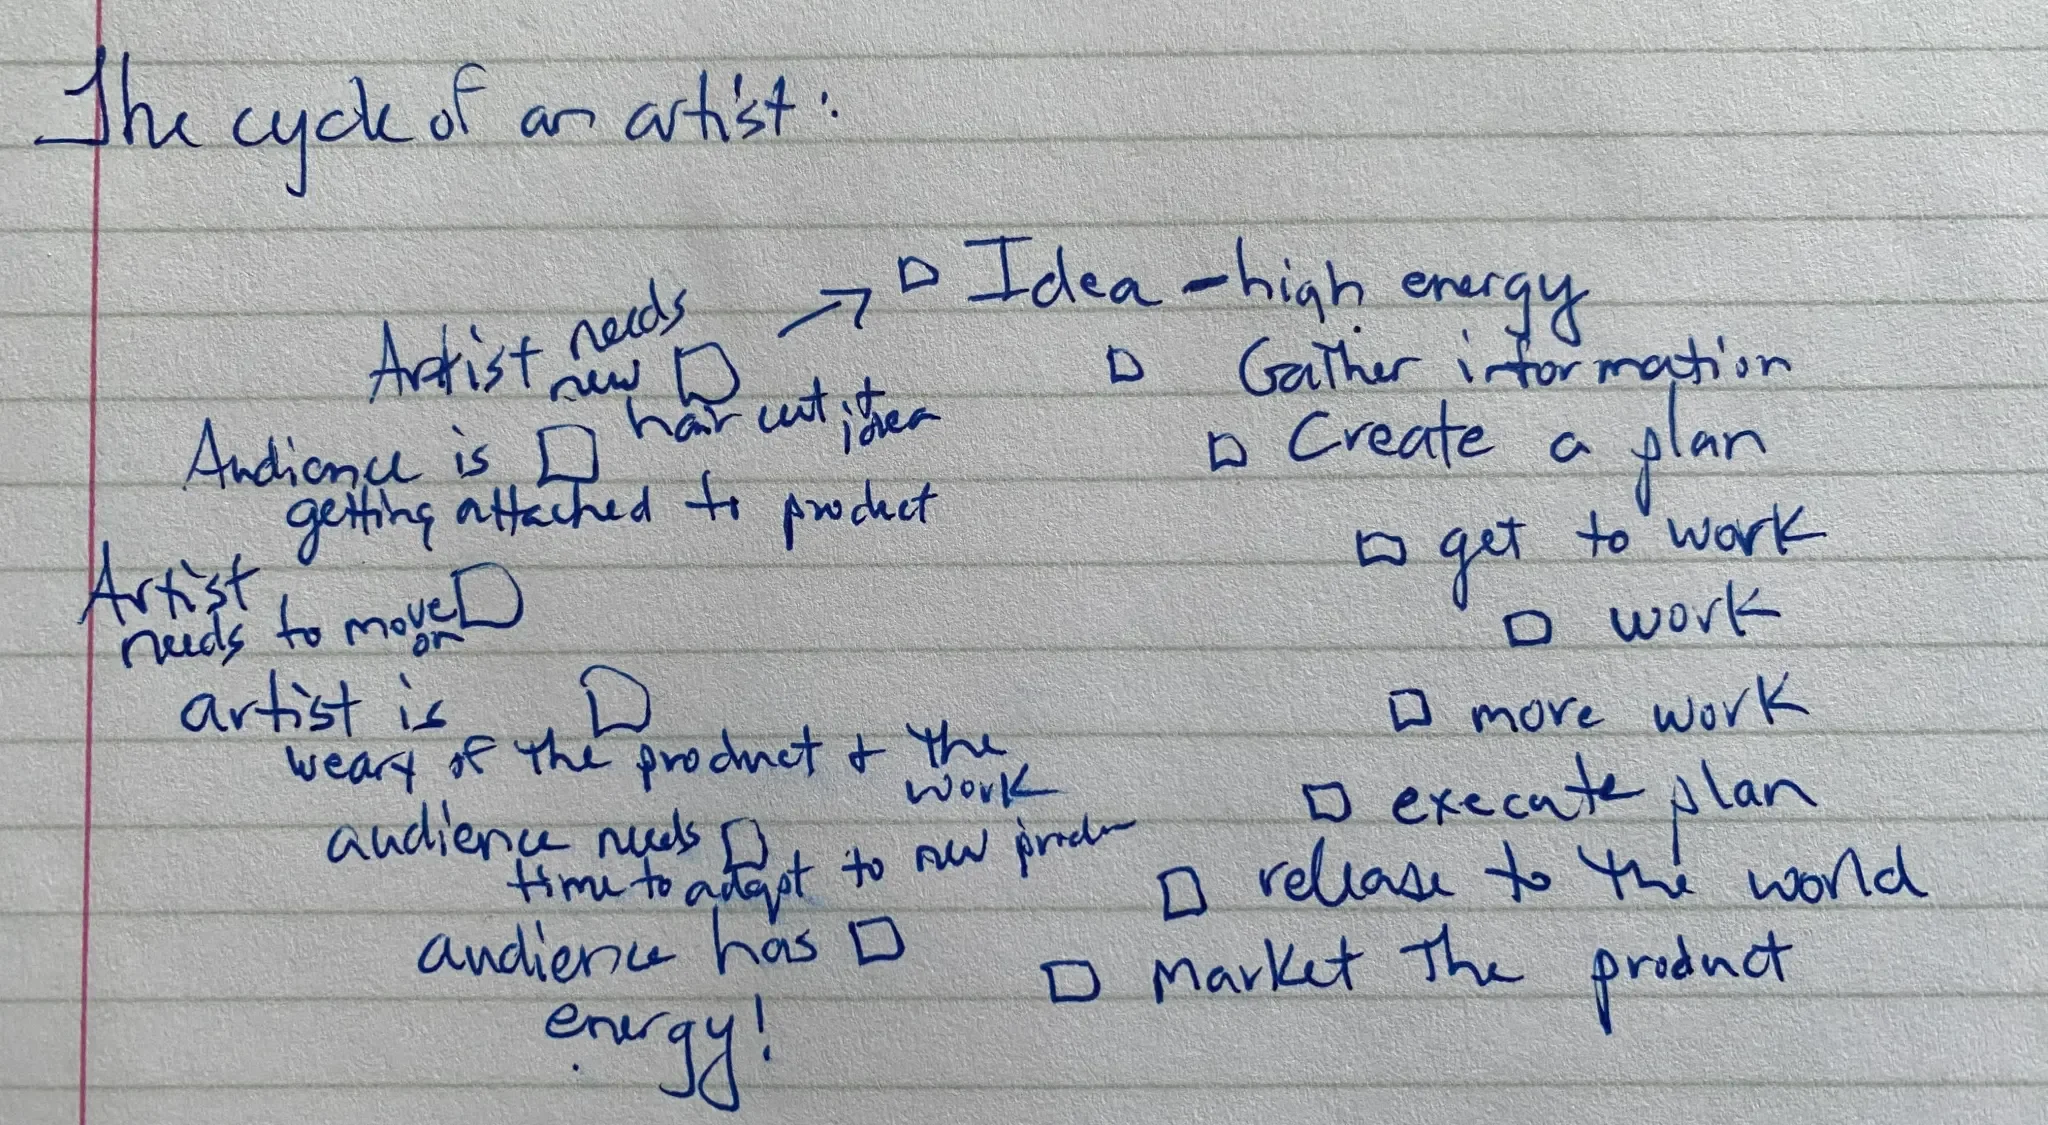 The cycle of an artist:
Idea - high energy
Gather information
Create a plan
get to work
work
more work
execute plan
release to the world
Market the product
audience has
energy!
audience needs
time to adapt to new
artist is
weary of the product + the
work
Artist
needs to move
on
Audience is
getting attached to product
Artist needs
new
hair cut +
idea